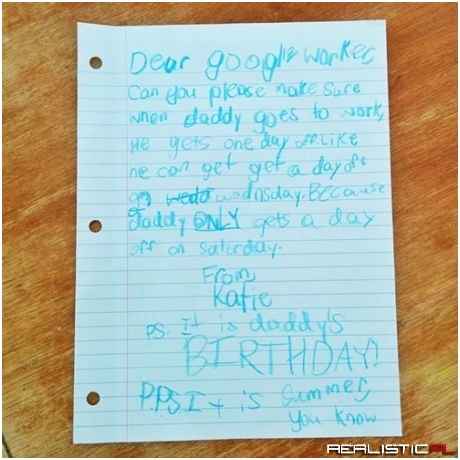 Dear google worker,
Can you please make sure
when daddy goes to work,
He gets one day off. Like
he can get get a day off
on wedd wednsday. BECause
daddy ONLY gets a day
off on saturday.
From,
Katie
P.S. It is daddy's
BIRTHDAY!
P.P.S It is summer,
you know
REALISTIC.PL